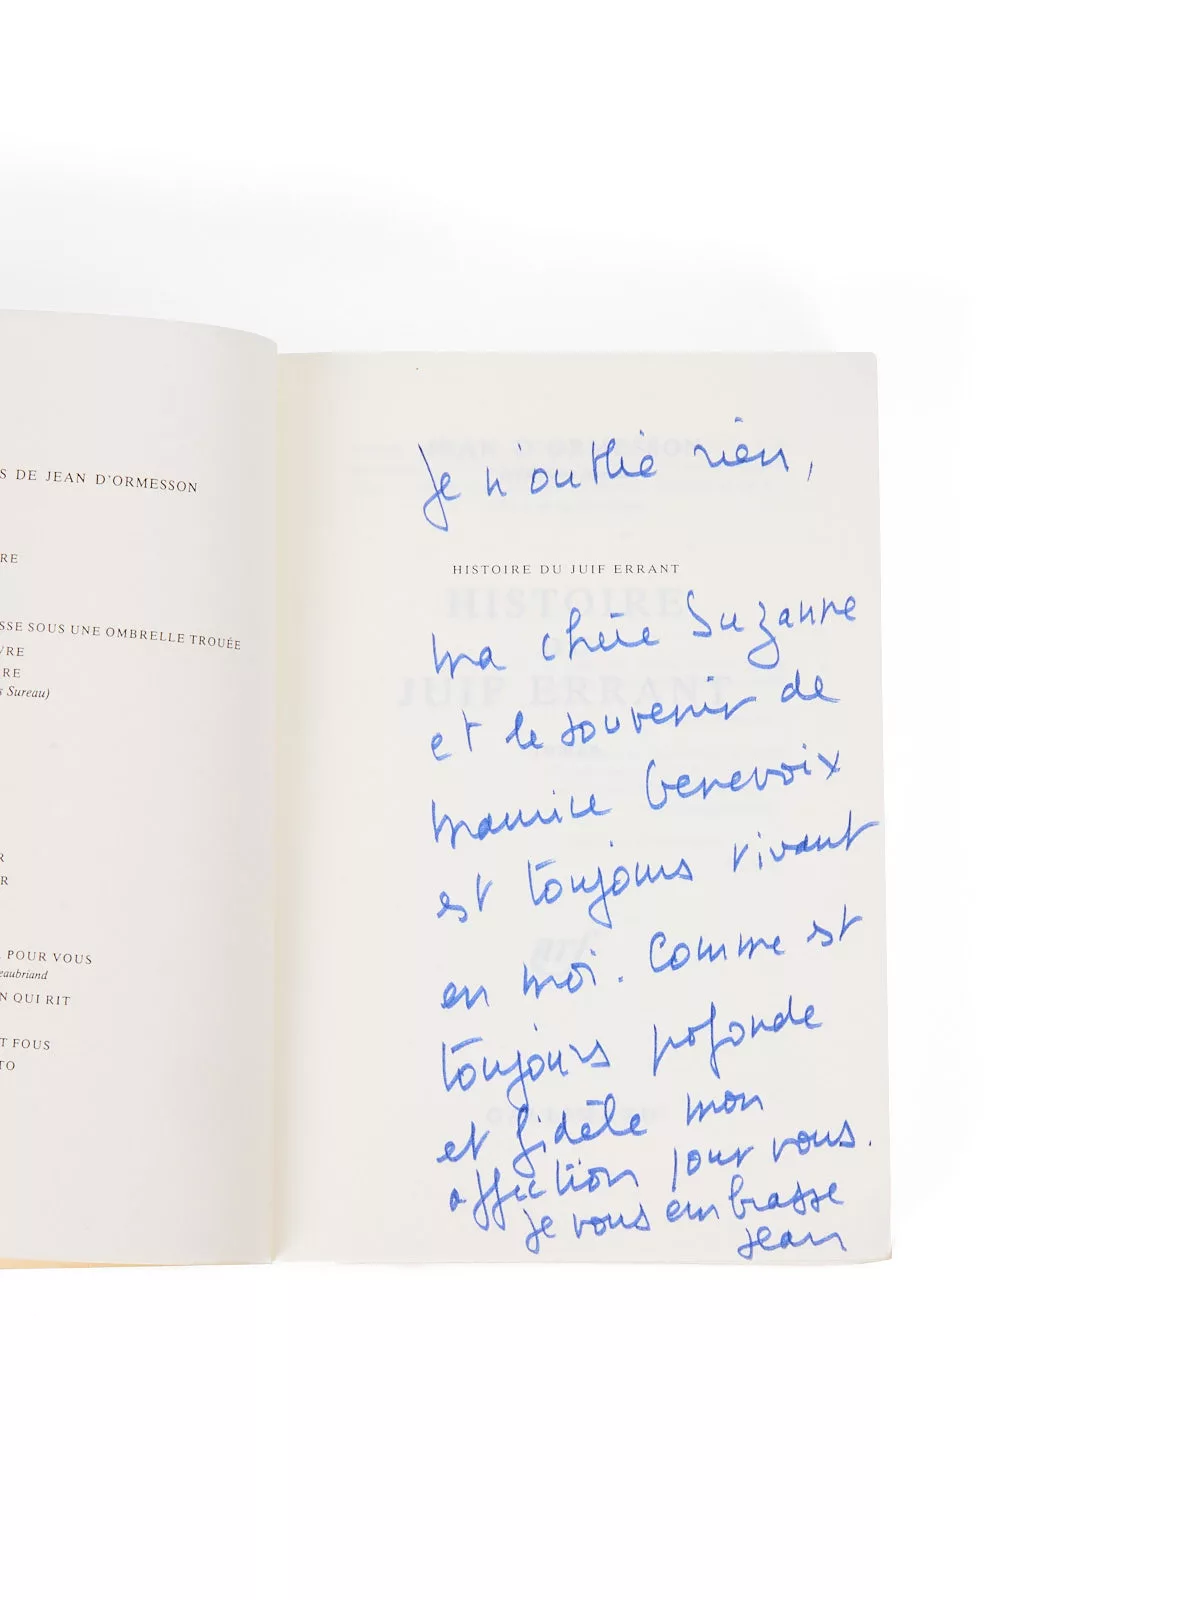 S DE JEAN D'ORMESSON
RE
SSE SOUS UNE OMBRELLE TROUÉE
VRE
RE
s Sureau)
R
R
POUR VOUS
eaubriand
N QUI RIT
T FOUS
TO
Je n'oublie rien,
HISTOIRE DU JUIF ERRANT
HISTOIRE
JUIF ERRANT
ma chère Suzanne
et le souvenir de
Maurice Genevoix
est toujours vivant
en moi. Comme est
toujours profonde
et fidèle mon
affection pour vous.
je vous embrasse
Jean